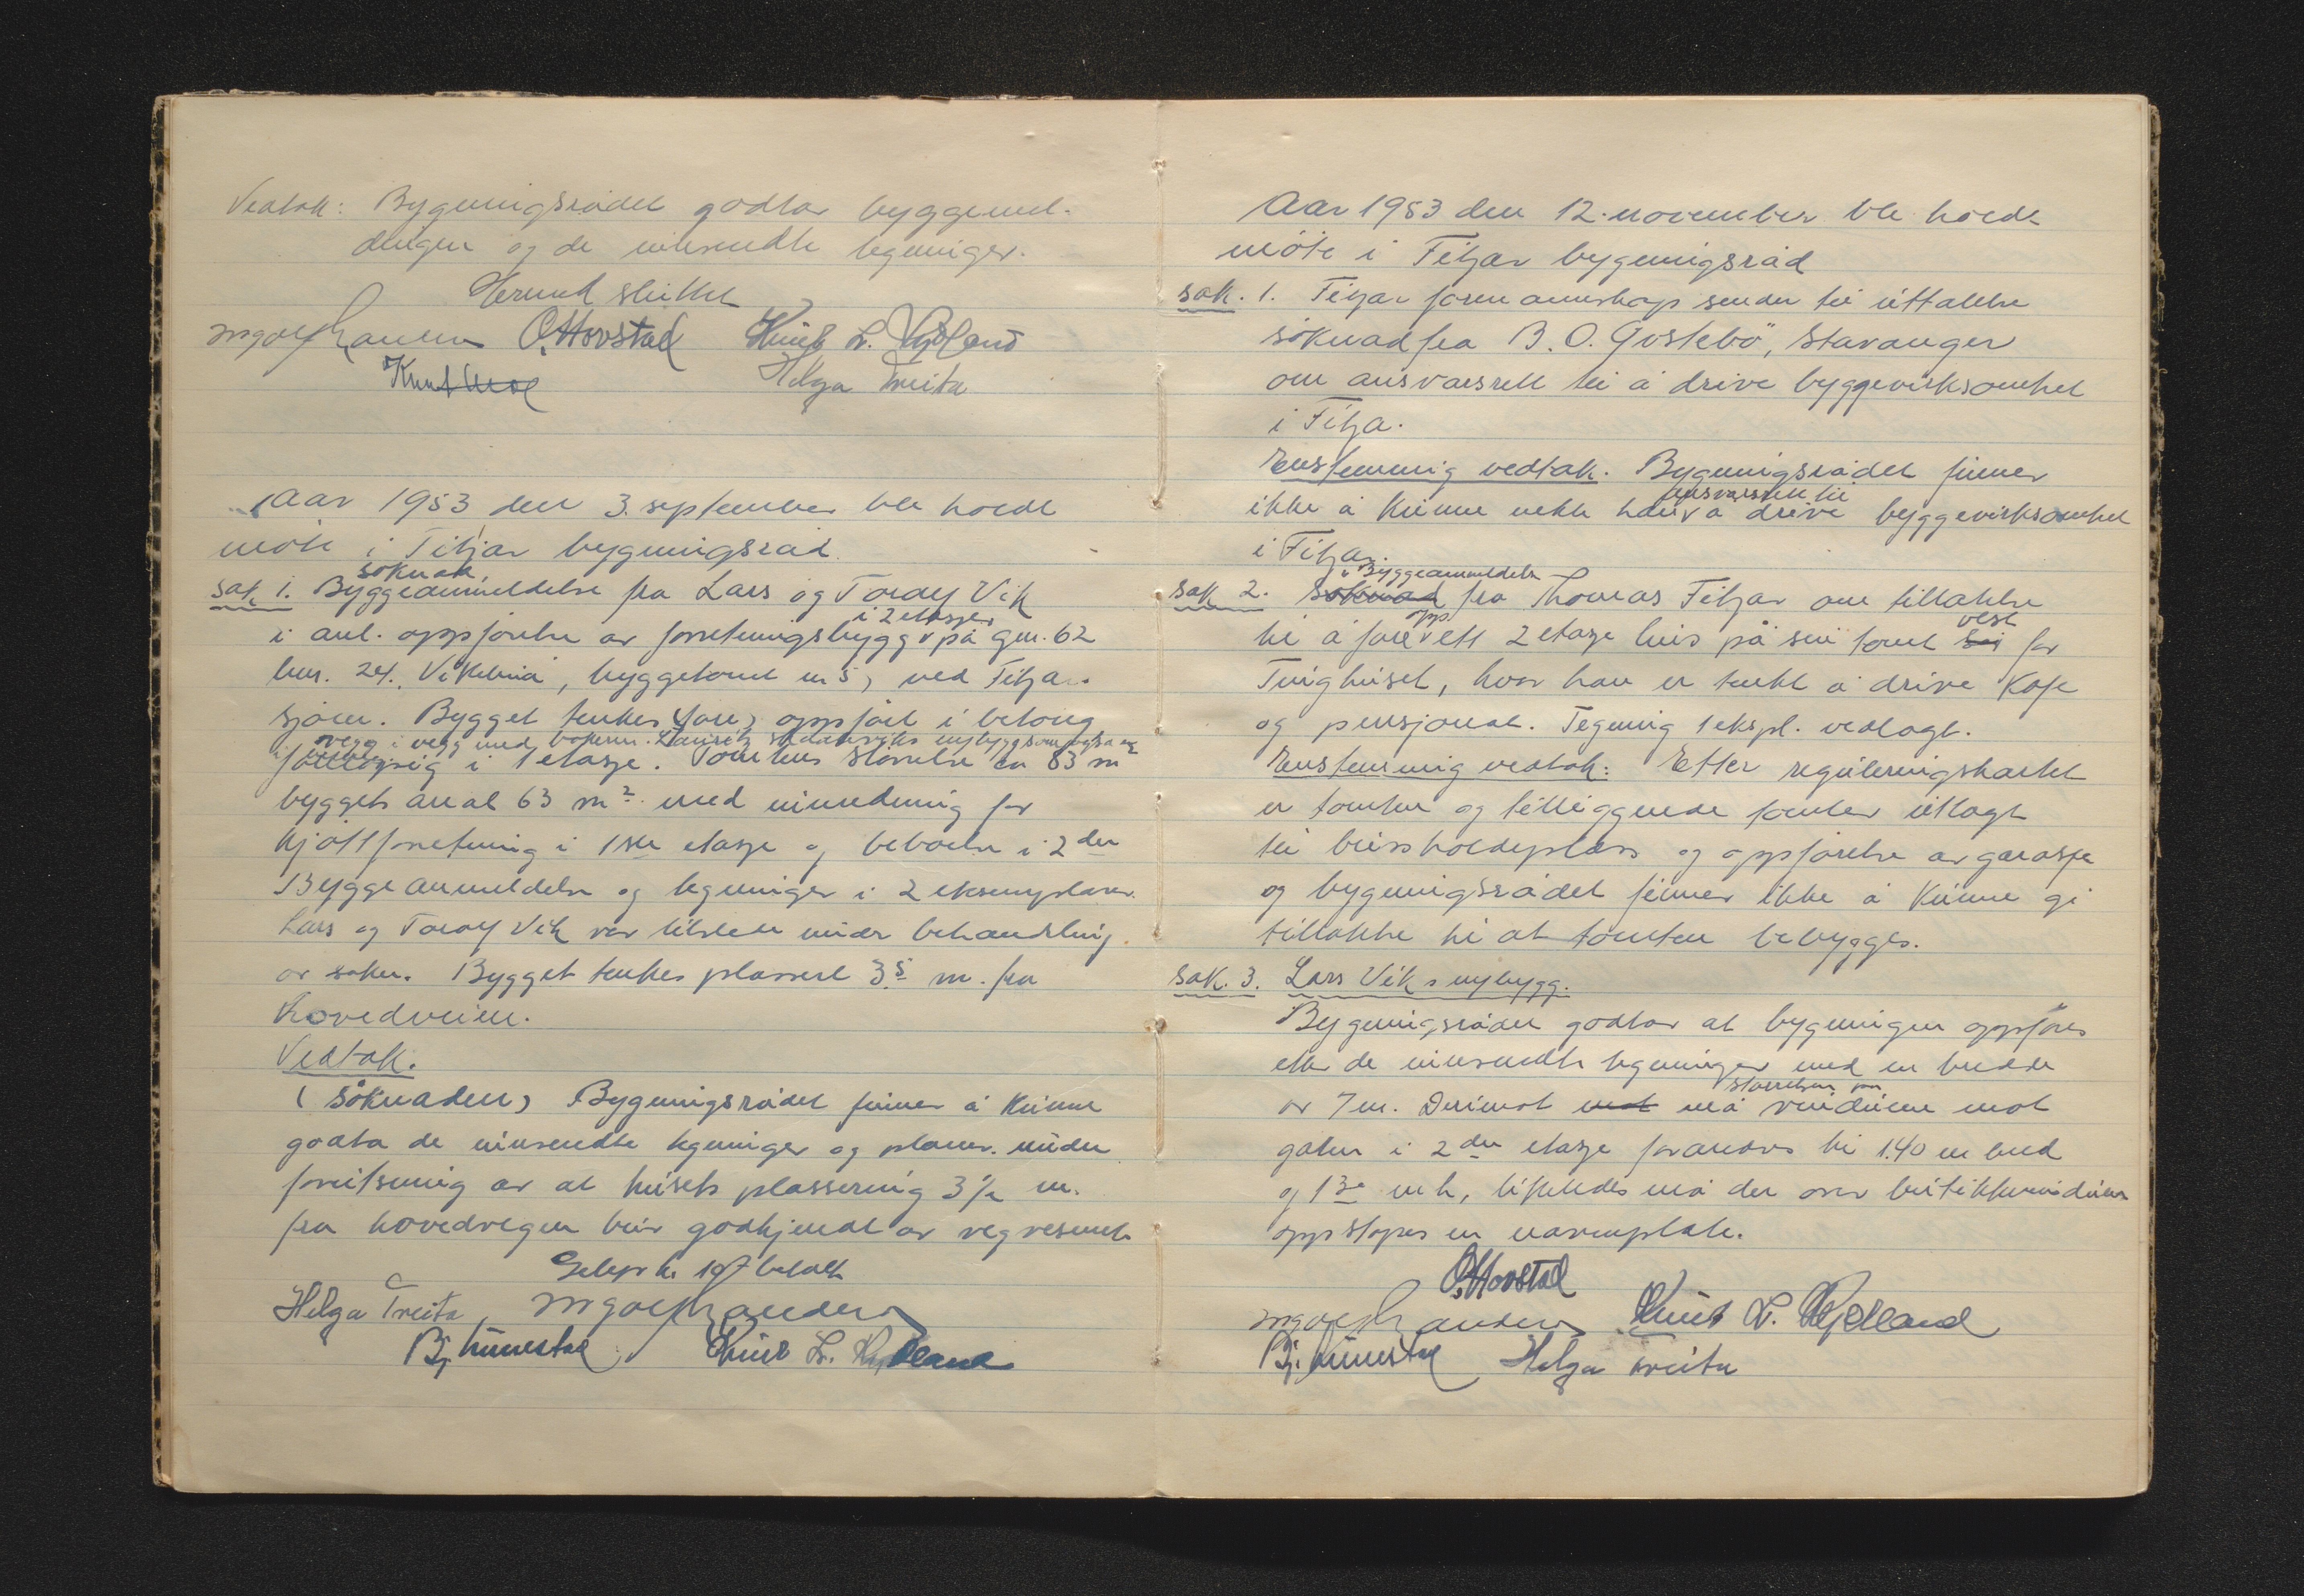 Vedtak: Bygningsrådet godtar byggemel-
dingen og de innsendte tegninger.
Herund sluttet
Ingolf Sanden O. Hovstad Knut L. Rydland
Knut Moe Helga Tveita
Aar 1953 den 3. september ble holdt
møte i Fitjar bygningsråd
søknad
Sak 1. Byggeanmeldelse fra Lars og Toralf Vik
i 2 etasjer
i anl. oppførelse av forretningsbygg v på gnr. 62
bnr. 24. Vikabrua, byggetomt nr 5, ved Fitjar
sjøen. Bygget tenkes (son) oppført i betong
vegg i vegg med nybygg som også er
i 1 etasje. Tomtens størrelse er 83 m²
byggets areal 63 m² med innredning for
kjøttforretning i 1ste etasje og beboelse i 2den
Byggeanmeldelse og tegninger i 2 eksemplarer.
Lars og Toralf Vik var tilstede under behandling
av saken. Bygget tenkes plassert 3.5 m. fra
hovedveien.
Vedtak.
(Søknaden) Bygningsrådet finner å kunne
godta de innsendte tegninger og planer. under
forutsetning av at husets plassering 3½ m.
fra hovedvegen blir godkjendt av vegvesenet
Gebyr kr. 10,- betalt
Helga Tveita Ingolf Sanden
Bj. Tunestad Knut L. Rydland
Aar 1953 den 12. november ble holdt
møte i Fitjar bygningsråd
sak. 1. Fitjar formannskap sender til uttalelse
søknad fra B. O. Gostebø, Stavanger
om ansvarsrett til å drive byggevirksomhet
i Fitja.
Enstemmig vedtak. Bygningsrådet finner
ansvarsrett til
ikke å kunne nekte ham v å drive byggevirksomhet
i Fitjar.
Byggeanmeldelse
sak 2. Søknad fra Thomas Fitjar om tillatelse
opp vest
til åføre v ett 2 etasje hus på sin tomt for
Tinghuset, hvor han er tenkt å drive Kafe
og pensjonat. Tegning 1 ekspl. vedlagt.
Enstemmig vedtak: Etter reguleringskartet
er tomten og tilliggende tomter utlagt
til bussholdeplass og oppførelse av garasje
og bygningsrådet finner ikke å kunne gi
tillatelse til at tomten bebygges.
Sak. 3. Lars Viks nybygg.
Bygningsrådet godtar at bygningen oppføres
etter de innsendte tegninger med en bredde
størrelsen på
av 7 m. Derimot mot må vinduene mot
gaten i 2den etasje forandres til 1.40 m bred
og 1.30 m h, likeledes må der over butikkvinduene
oppstøpes en navneplate.
O. Hovstad
Ingolf Sanden Knut L. Rydland
Bj. Tunestad Helga Tveita